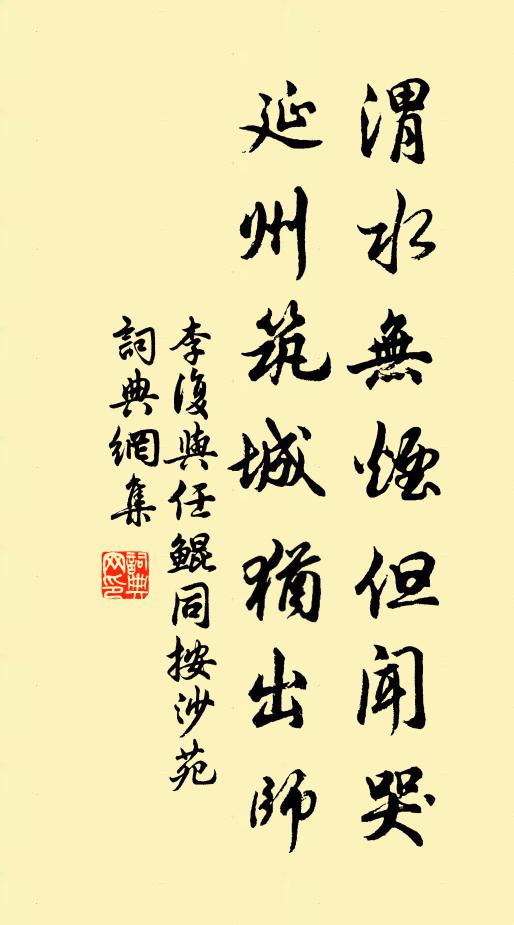 渭水無煙但闻哭
延州筑城猶出師
李復與任鲲同按沙苑
詞典網集
詞典網印